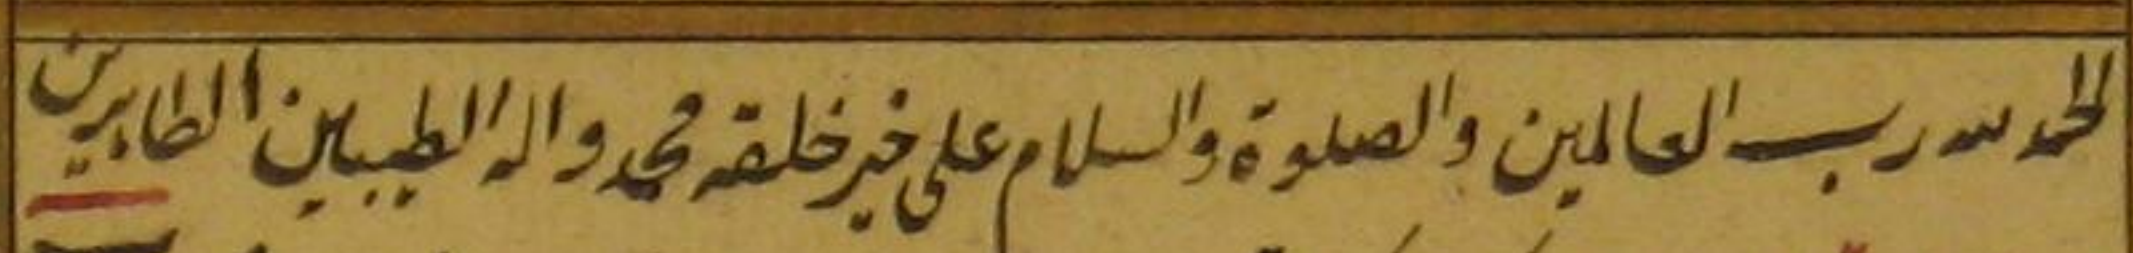 الحمد لله رب العالمين والصلوة والسلام على خير خلقه محمد واله الطيبين الطاهرين